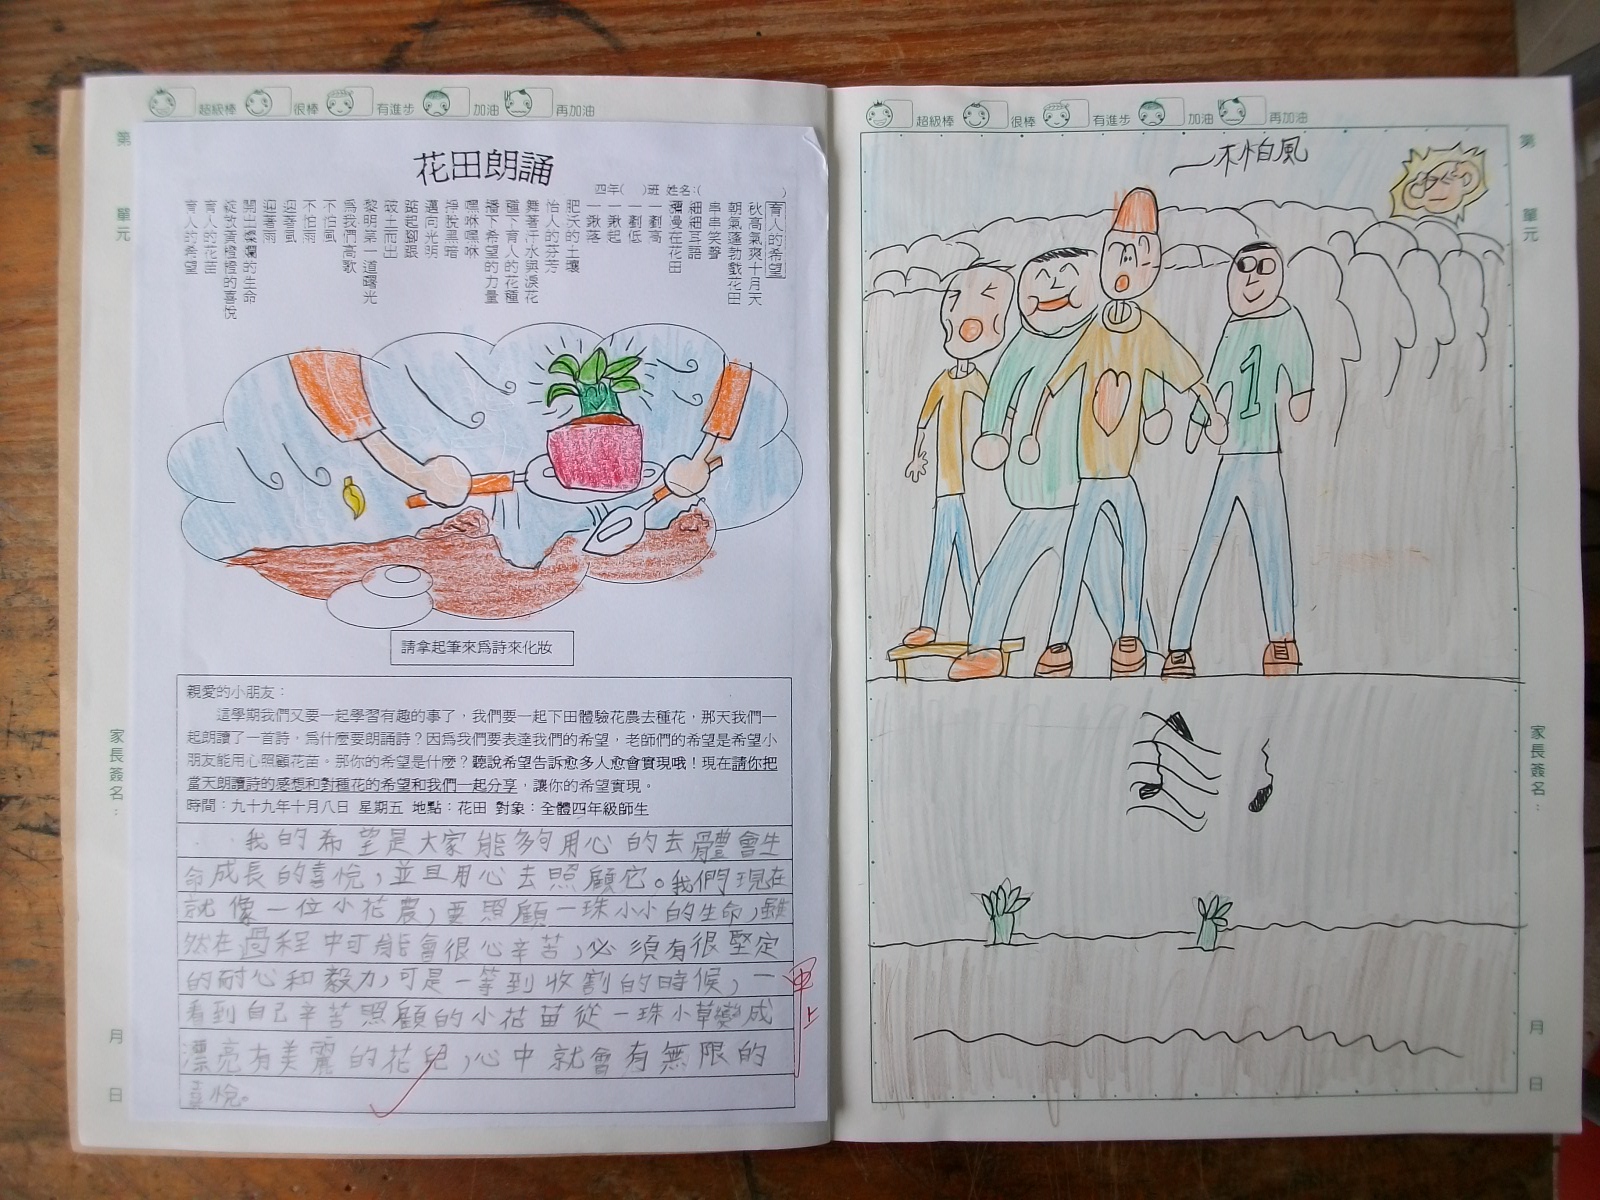 超級棒 很棒 有進步 加油 再加油
第
單元
家長簽名：
月
日
花田朗誦
四年( )班 姓名:( )
育人的希望
秋高氣爽十月天
朝氣蓬勃戲花田
串串笑聲
細細耳語
瀰漫在花田
一劃高
一劃低
一鍬起
一鍬落
肥沃的土壤
怡人的芬芳
舞著汗水與淚花
種下育人的花種
播下希望的力量
嘿咻嘿咻
掙脫黑暗
邁向光明
踮起腳跟
破土而出
黎明第一道曙光
為我們高歌
不怕風
不怕雨
迎著風
迎著雨
開出燦爛的生命
綻放黃橙橙的喜悅
育人的花苗
育人的希望
請拿起筆來為詩來化妝
親愛的小朋友：
這學期我們又要一起學習有趣的事了，我們要一起下田體驗花農去種花，那天我們一
起朗讀了一首詩，為什麼要朗誦詩？因為我們要表達我們的希望，老師們的希望是希望小
朋友能用心照顧花苗。那你的希望是什麼？聽說希望告訴愈多人愈會實現哦！現在請你把
當天朗讀詩的感想和對種花的希望和我們一起分享，讓你的希望實現。
時間：九十九年十月八日 星期五 地點：花田 對象：全體四年級師生
我的希望是大家能夠用心的去體會生
命成長的喜悅，並且用心去照顧它。我們現在
就像一位小花農，要照顧一珠小小的生命，雖
然在過程中可能會很心辛苦，必須有很堅定
的耐心和毅力，可是一等到收割的時候，一
看到自己辛苦照顧的小花苗從一珠小草變成
漂亮有美麗的花兒，心中就會有無限的
喜悅。
超級棒 很棒 有進步 加油 再加油
不怕風
第
單元
家長簽名：
月
日